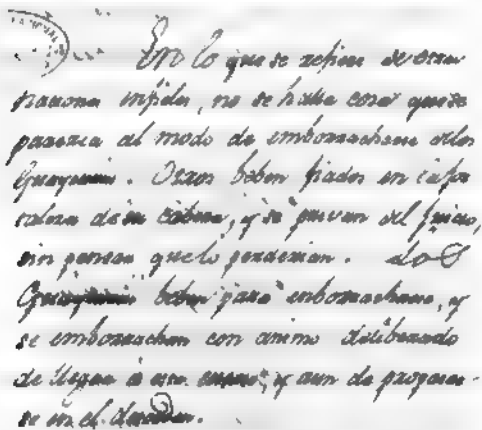 En lo que se refiere de otras
naciones infieles, no se halla cosa que se
parezca al modo de emborracharse de los
Guaycurús. Otros beben fiados en la for
taleza de su cabeza, y se privan del juicio,
sin pensar que lo perderian. Los
beben para emborracharse, y
se emborrachan con animo deliberado
de llegar á este y aun de propasar-
se en el